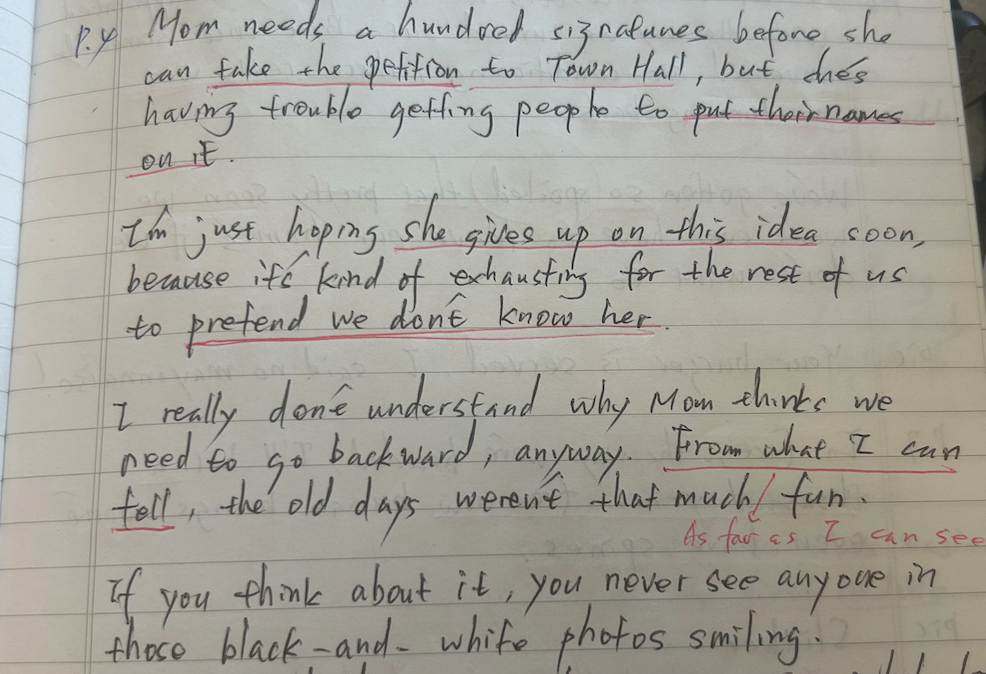 P.4 Mom needs a hundred signatures before she
can take the petition to Town Hall, but she's
having trouble getting people to put their names
on it.
I'm just hoping she gives up on this idea soon,
because it's kind of exhausting for the rest of us
to pretend we don't know her.
I really don't understand why Mom thinks we
need to go backward, anyway. From what I can
tell, the old days weren't that much fun.
As far as I can see
If you think about it, you never see anyone in
those black-and-white photos smiling.